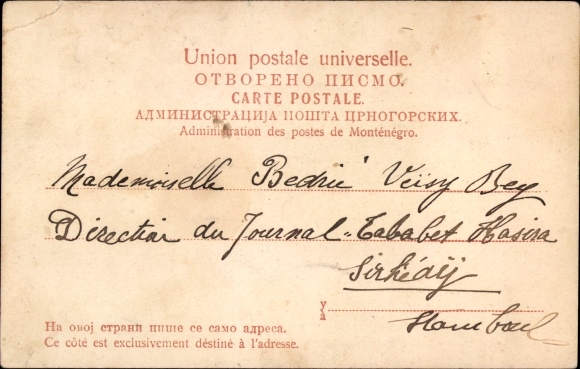 Union postale universelle.
ОТВОРЕНО ПИСМО.
CARTE POSTALE.
АДМИНИСТРАЦИЈА ПОШТА ЦРНОГОРСКИХ.
Administration des postes de Monténégro.
Mademoiselle Bedrié Veisy Bey
Direction du Journal "Tababet Hasira
Sirkédij
у
à
Stamboul
На овој страни пише се само адреса.
Ce côté est exclusivement déstiné à l'adresse.